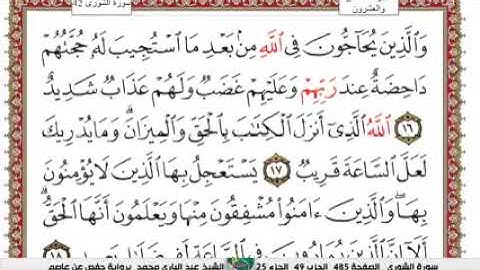 والعشرون
سورة الشورى 42
وَالَّذِينَ يُحَاجُّونَ فِي اللَّهِ مِنۢ بَعْدِ مَا ٱسْتُجِيبَ لَهُۥ حُجَّتُهُمْ
دَاحِضَةٌ عِندَ رَبِّهِمْ وَعَلَيْهِمْ غَضَبٌ وَلَهُمْ عَذَابٌ شَدِيدٌ
١٦ ٱللَّهُ ٱلَّذِىٓ أَنزَلَ ٱلْكِتَٰبَ بِٱلْحَقِّ وَٱلْمِيزَانَ ۗ وَمَا يُدْرِيكَ
لَعَلَّ ٱلسَّاعَةَ قَرِيبٌ ١٧ يَسْتَعْجِلُ بِهَا ٱلَّذِينَ لَا يُؤْمِنُونَ
بِهَا ۖ وَٱلَّذِينَ ءَامَنُوا۟ مُشْفِقُونَ مِنْهَا وَيَعْلَمُونَ أَنَّهَا ٱلْحَقُّ ۗ
أَلَآ إِنَّ ٱلَّذِينَ يُمَارُونَ فِى ٱلسَّاعَةِ لَفِى ضَلَٰلٍۭ بَعِيدٍ ١٨
سورة الشورى الصفحة 485 الحزب 49 الجزء 25 الشيخ عبد الباري محمد برواية حفص عن عاصم